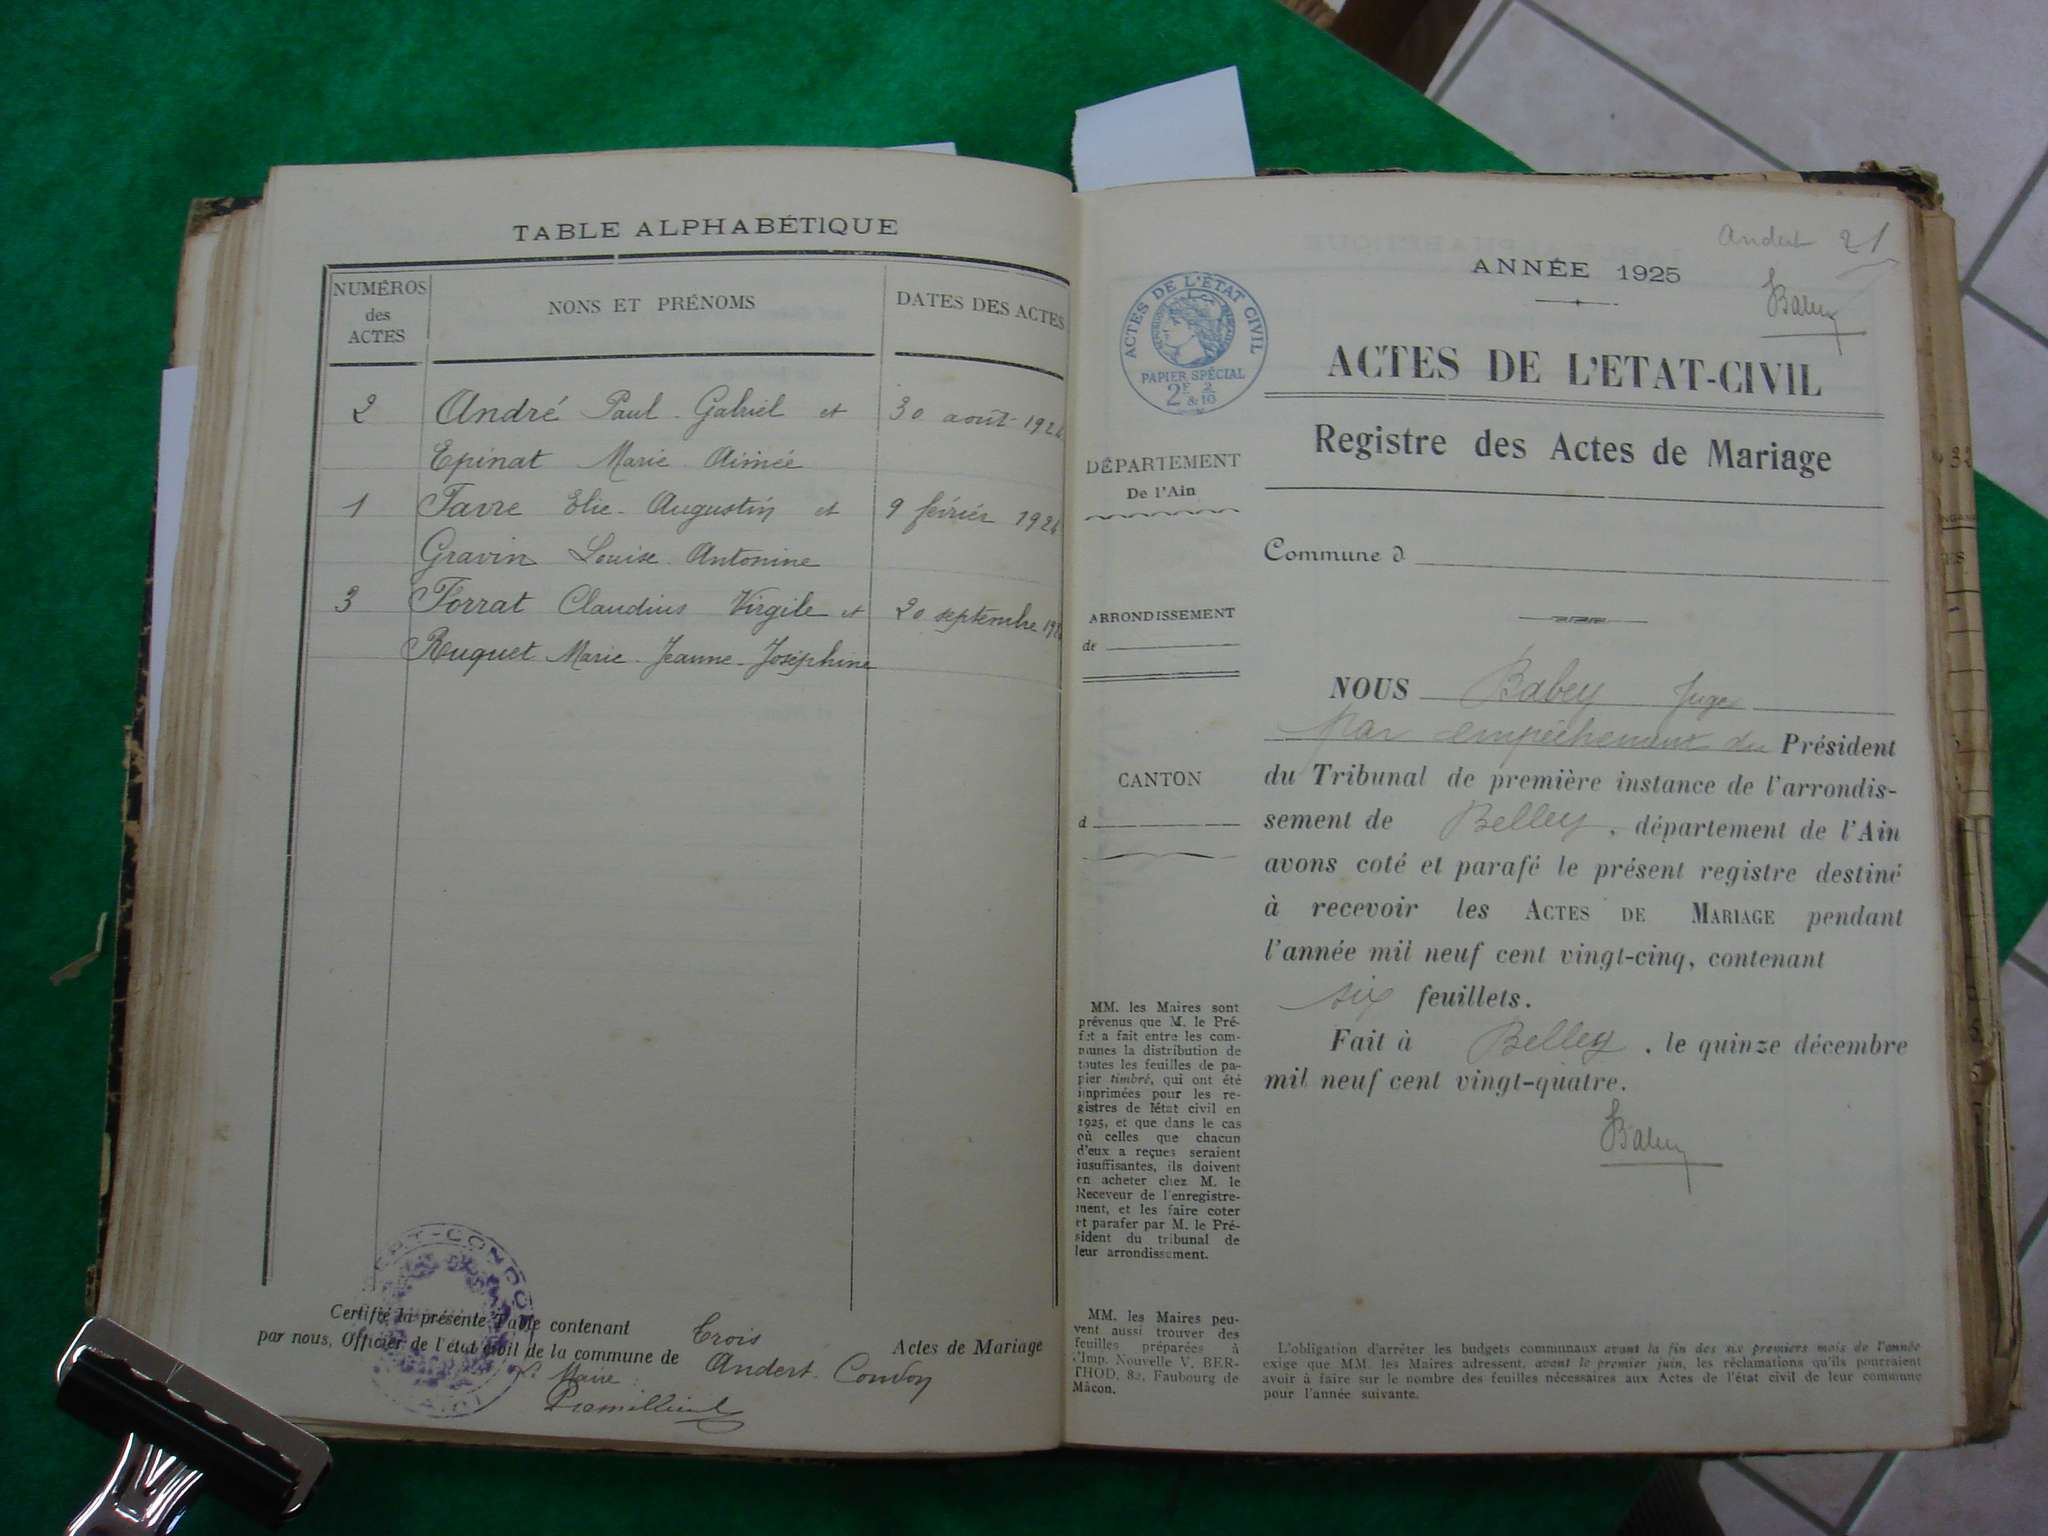 TABLE ALPHABÉTIQUE
NUMÉROS
des
ACTES
NONS ET PRÉNOMS
DATES DES ACTES
2 André Paul Gabriel et 30 août 1924
Epinat Marie Aimée
1 Favre Elie Augustin et 9 février 1924
Gravin Louise Antonine
3 Forrat Claudius Virgile et 20 septembre
Ruquet Marie Jeanne Joséphine
Certifié la présente Table contenant Trois Actes de Mariage
par nous, Officier de l'état civil de la commune de Andert Condon
Maire
andert 21
ANNÉE 1925
Babey
ACTES DE L'ETAT CIVIL
PAPIER SPÉCIAL
2F & 2/10
ACTES DE L'ETAT-CIVIL
Registre des Actes de Mariage
DÉPARTEMENT
De l'Ain
Commune d
ARRONDISSEMENT
de
CANTON
d
NOUS Babey Juge
par empêchement du Président
du Tribunal de première instance de l'arrondis-
sement de Belley, département de l'Ain
avons coté et parafé le présent registre destiné
à recevoir les ACTES DE MARIAGE pendant
l'année mil neuf cent vingt-cinq, contenant
six feuillets.
Fait à Belley, le quinze décembre
mil neuf cent vingt-quatre.
Babey
MM. les Maires sont
prévenus que M. le Pré-
fet a fait entre les com-
munes la distribution de
toutes les feuilles de pa-
pier timbré, qui ont été
imprimées pour les re-
gistres de létat civil en
1925, et que dans le cas
où celles que chacun
d'eux a reçues seraient
insuffisantes, ils doivent
en acheter chez M. le
Receveur de l'enregistre-
ment, et les faire coter
et parafer par M. le Pré-
sident du tribunal de
leur arrondissement.
MM. les Maires peu-
vent aussi trouver des
feuilles préparées à
l'Imp. Nouvelle V. BER-
THOD, 82, Faubourg de
Mâcon.
L'obligation d'arrêter les budgets communaux avant la fin des six premiers mois de l'année
exige que MM. les Maires adressent, avant le premier juin, les réclamations qu'ils pourraient
avoir à faire sur le nombre des feuilles nécessaires aux Actes de l'état civil de leur commune
pour l'année suivante.